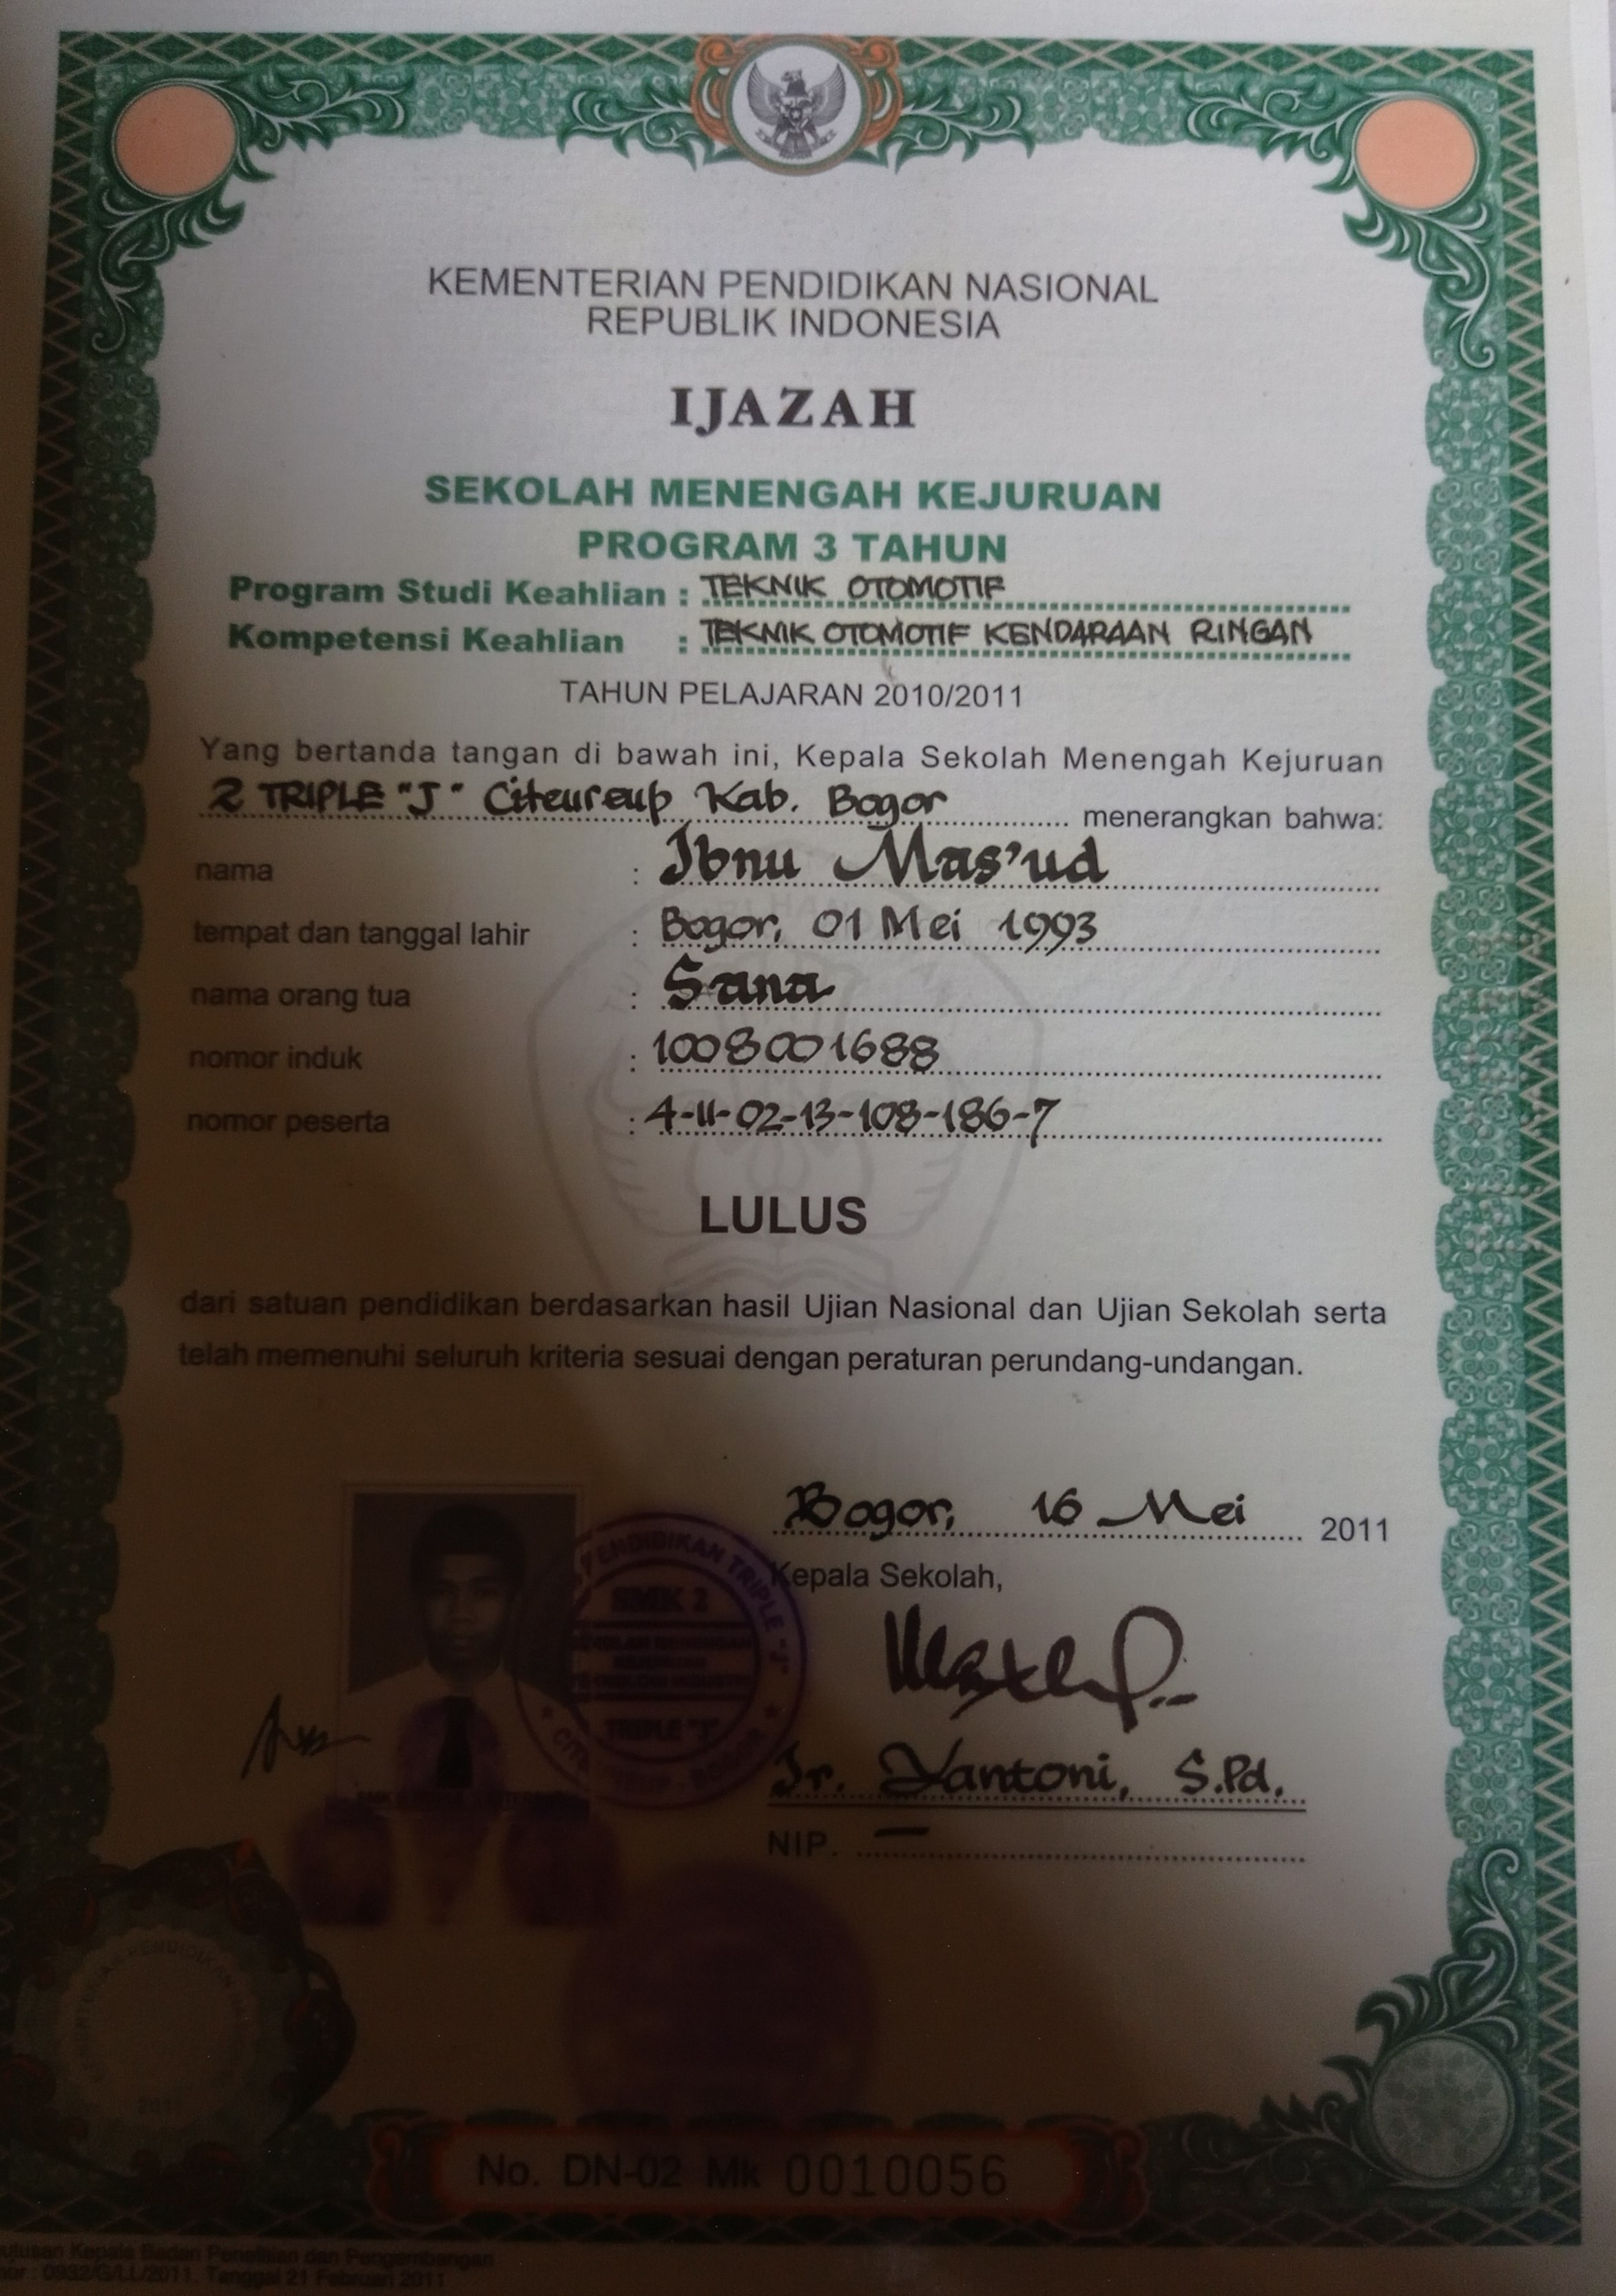 KEMENTERIAN PENDIDIKAN NASIONAL
REPUBLIK INDONESIA
IJAZAH
SEKOLAH MENENGAH KEJURUAN
PROGRAM 3 TAHUN
Program Studi Keahlian : TEKNIK OTOMOTIF
Kompetensi Keahlian : TEKNIK OTOMOTIF KENDARAAN RINGAN
TAHUN PELAJARAN 2010/2011
Yang bertanda tangan di bawah ini, Kepala Sekolah Menengah Kejuruan
2 TRIPLE "J" Citeureup Kab. Bogor menerangkan bahwa:
nama : Ibnu Mas'ud
tempat dan tanggal lahir : Bogor, 01 Mei 1993
nama orang tua : Sana
nomor induk : 1008001688
nomor peserta : 4-11-02-13-108-186-7
LULUS
dari satuan pendidikan berdasarkan hasil Ujian Nasional dan Ujian Sekolah serta
telah memenuhi seluruh kriteria sesuai dengan peraturan perundang-undangan.
Bogor, 16 Mei 2011
Kepala Sekolah,
PENDIDIKAN TRIPLE "J"
SMK 2
TRIPLE "J"
BOGOR
Ir. Yantoni, S.Pd.
NIP. —
No. DN-02 Mk 0010056
Kepala Badan Penelitian dan Pengembangan
0932/G/LL/2011, Tanggal 21 Februari 2011